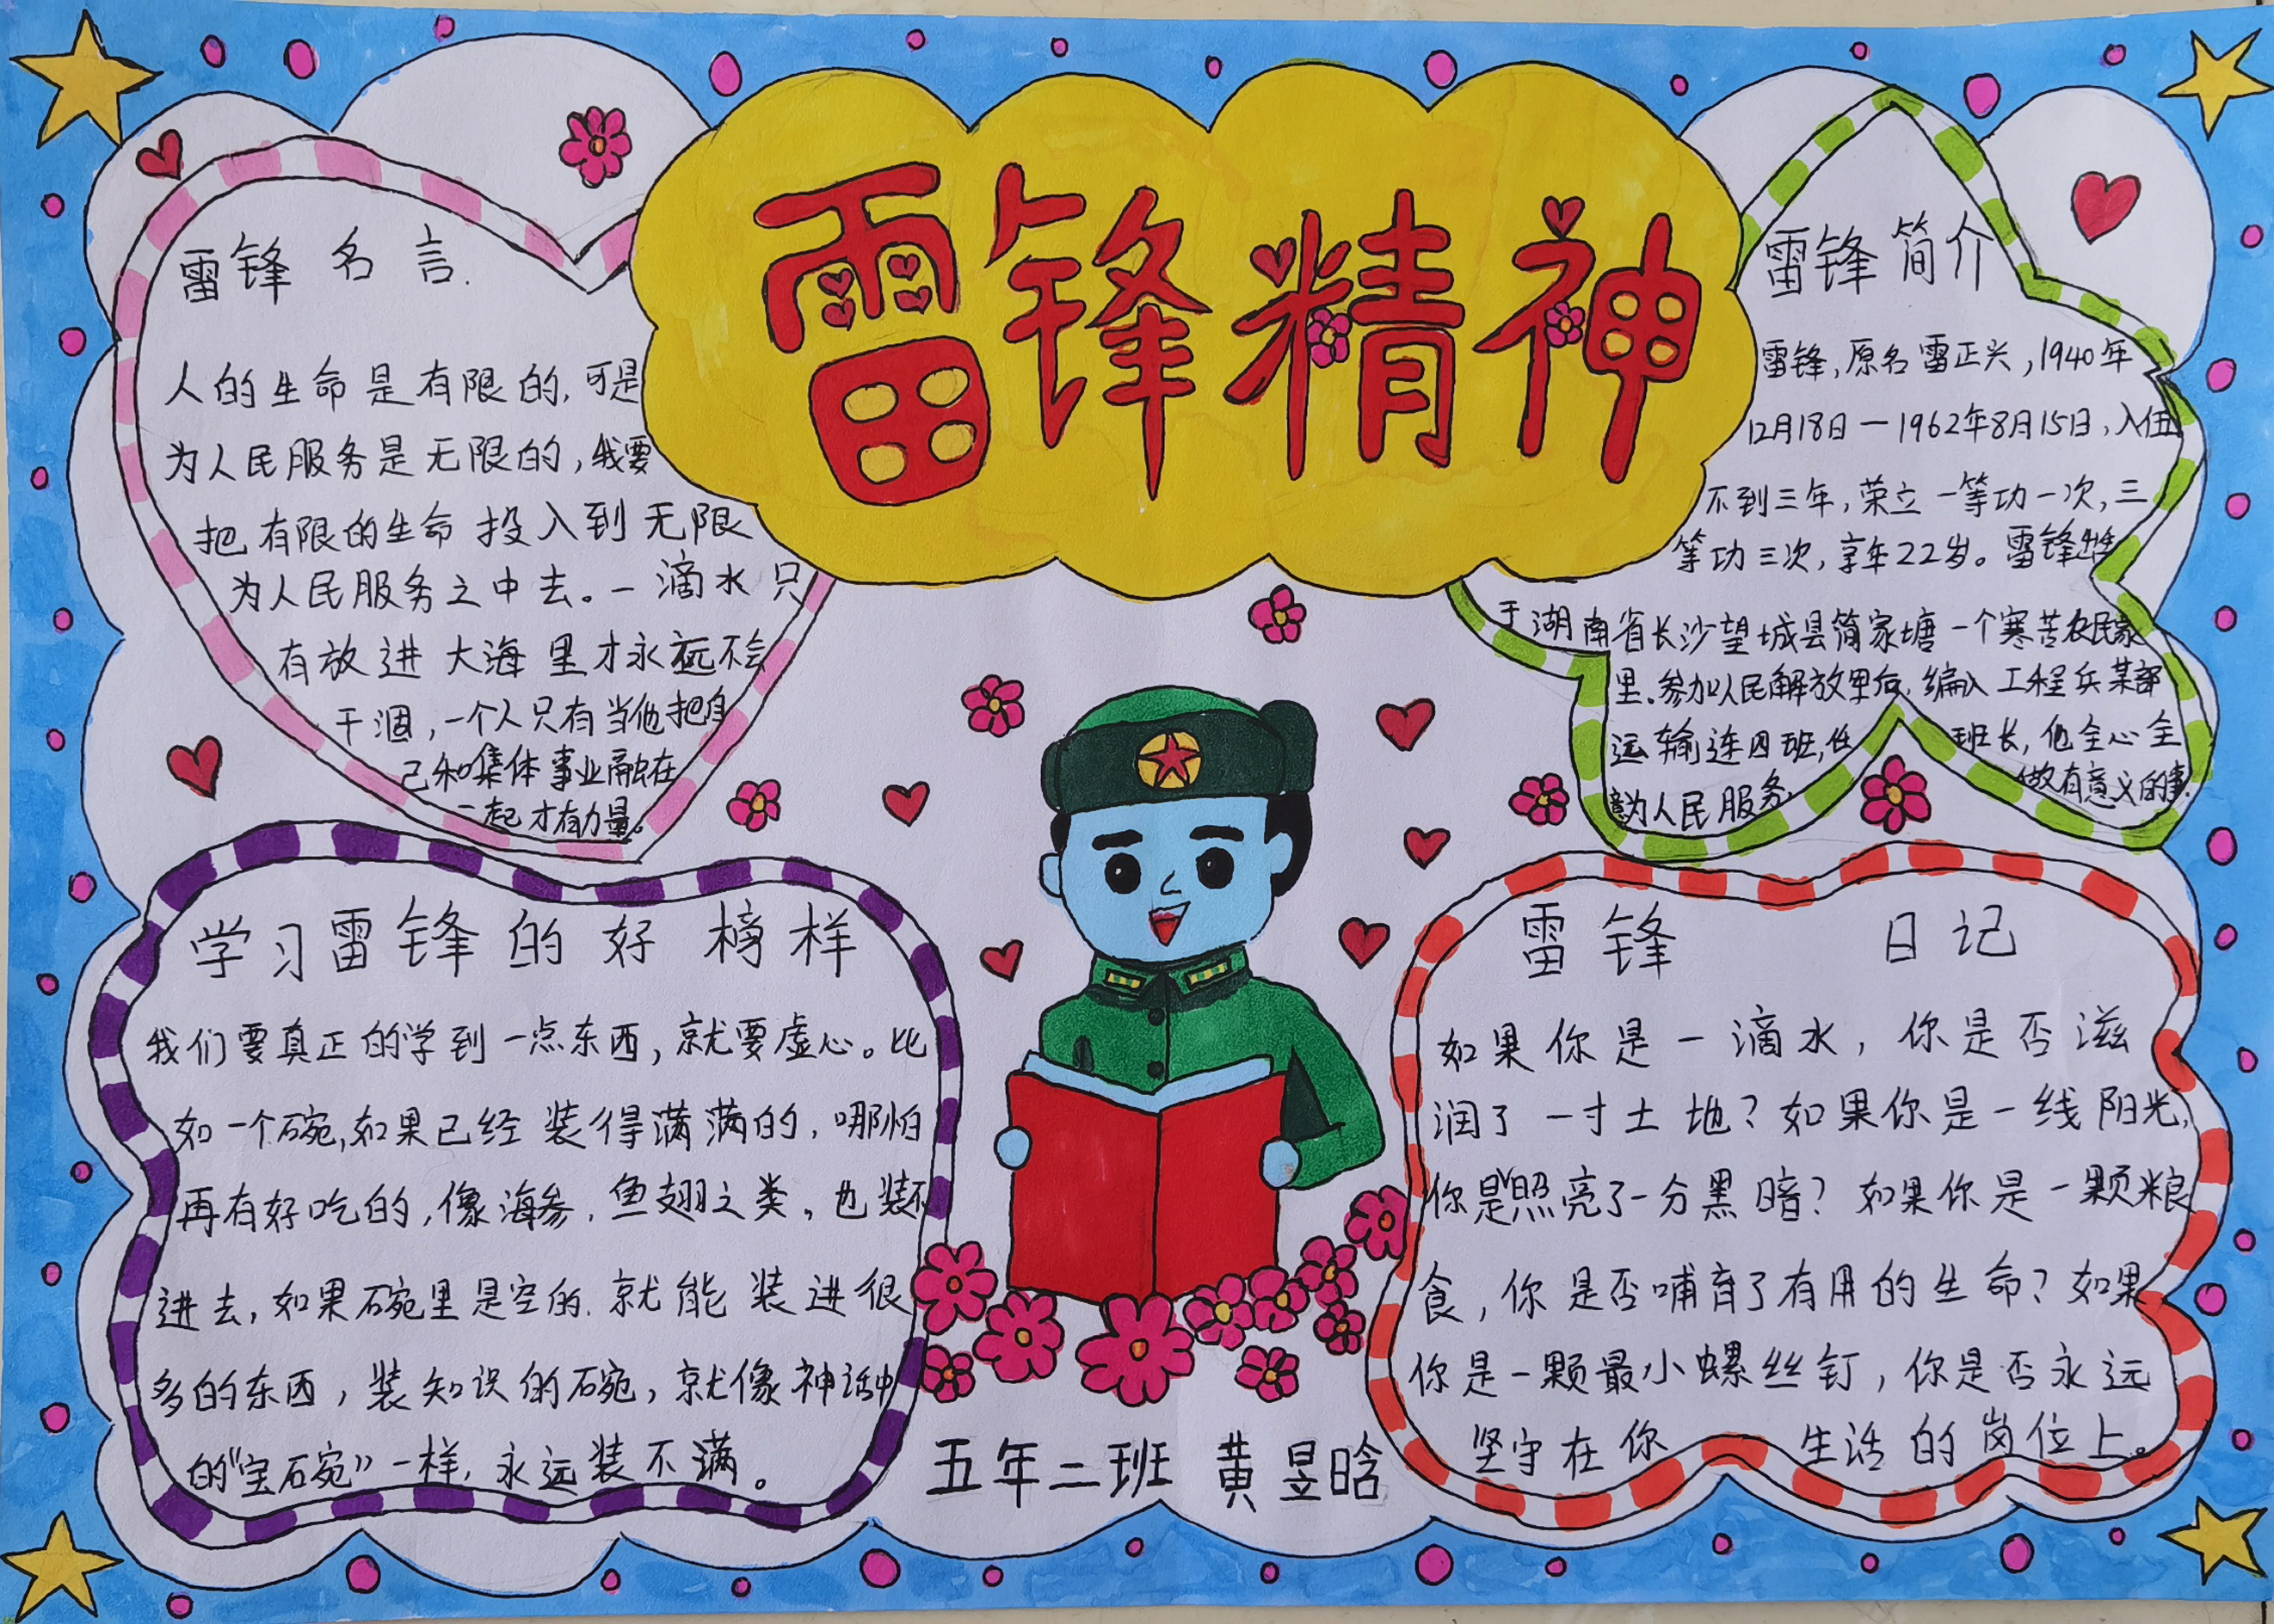 雷锋精神
雷锋名言.
人的生命是有限的,可是
为人民服务是无限的,我要
把有限的生命投入到无限
为人民服务之中去。一滴水只
有放进大海里才永远不会
干涸,一个人只有当他把自
己和集体事业融在
一起才有力量。
雷锋简介
雷锋,原名雷正兴,1940年
12月18日一1962年8月15日,入伍
不到三年,荣立一等功一次,三
等功三次,享年22岁。雷锋出生
于湖南省长沙望城县简家塘一个寒苦农民家
里.参加人民解放军后,编入工程兵某部
运输连四班,任 班长,他全心全
意为人民服务, 做有意义的事.
学习雷锋的好榜样
我们要真正的学到一点东西,就要虚心。比
如一个碗,如果已经装得满满的,哪怕
再有好吃的,像海参,鱼翅之类,也装不
进去,如果碗里是空的,就能装进很
多的东西,装知识的碗,就像神话中
的“宝碗”一样,永远装不满。
雷锋日记
如果你是一滴水,你是否滋
润了一寸土地?如果你是一线阳光,
你是照亮了一分黑暗?如果你是一颗粮
食,你是否哺育了有用的生命?如果
你是一颗最小螺丝钉,你是否永远
坚守在你生活的岗位上。
五年二班 黄昱晗